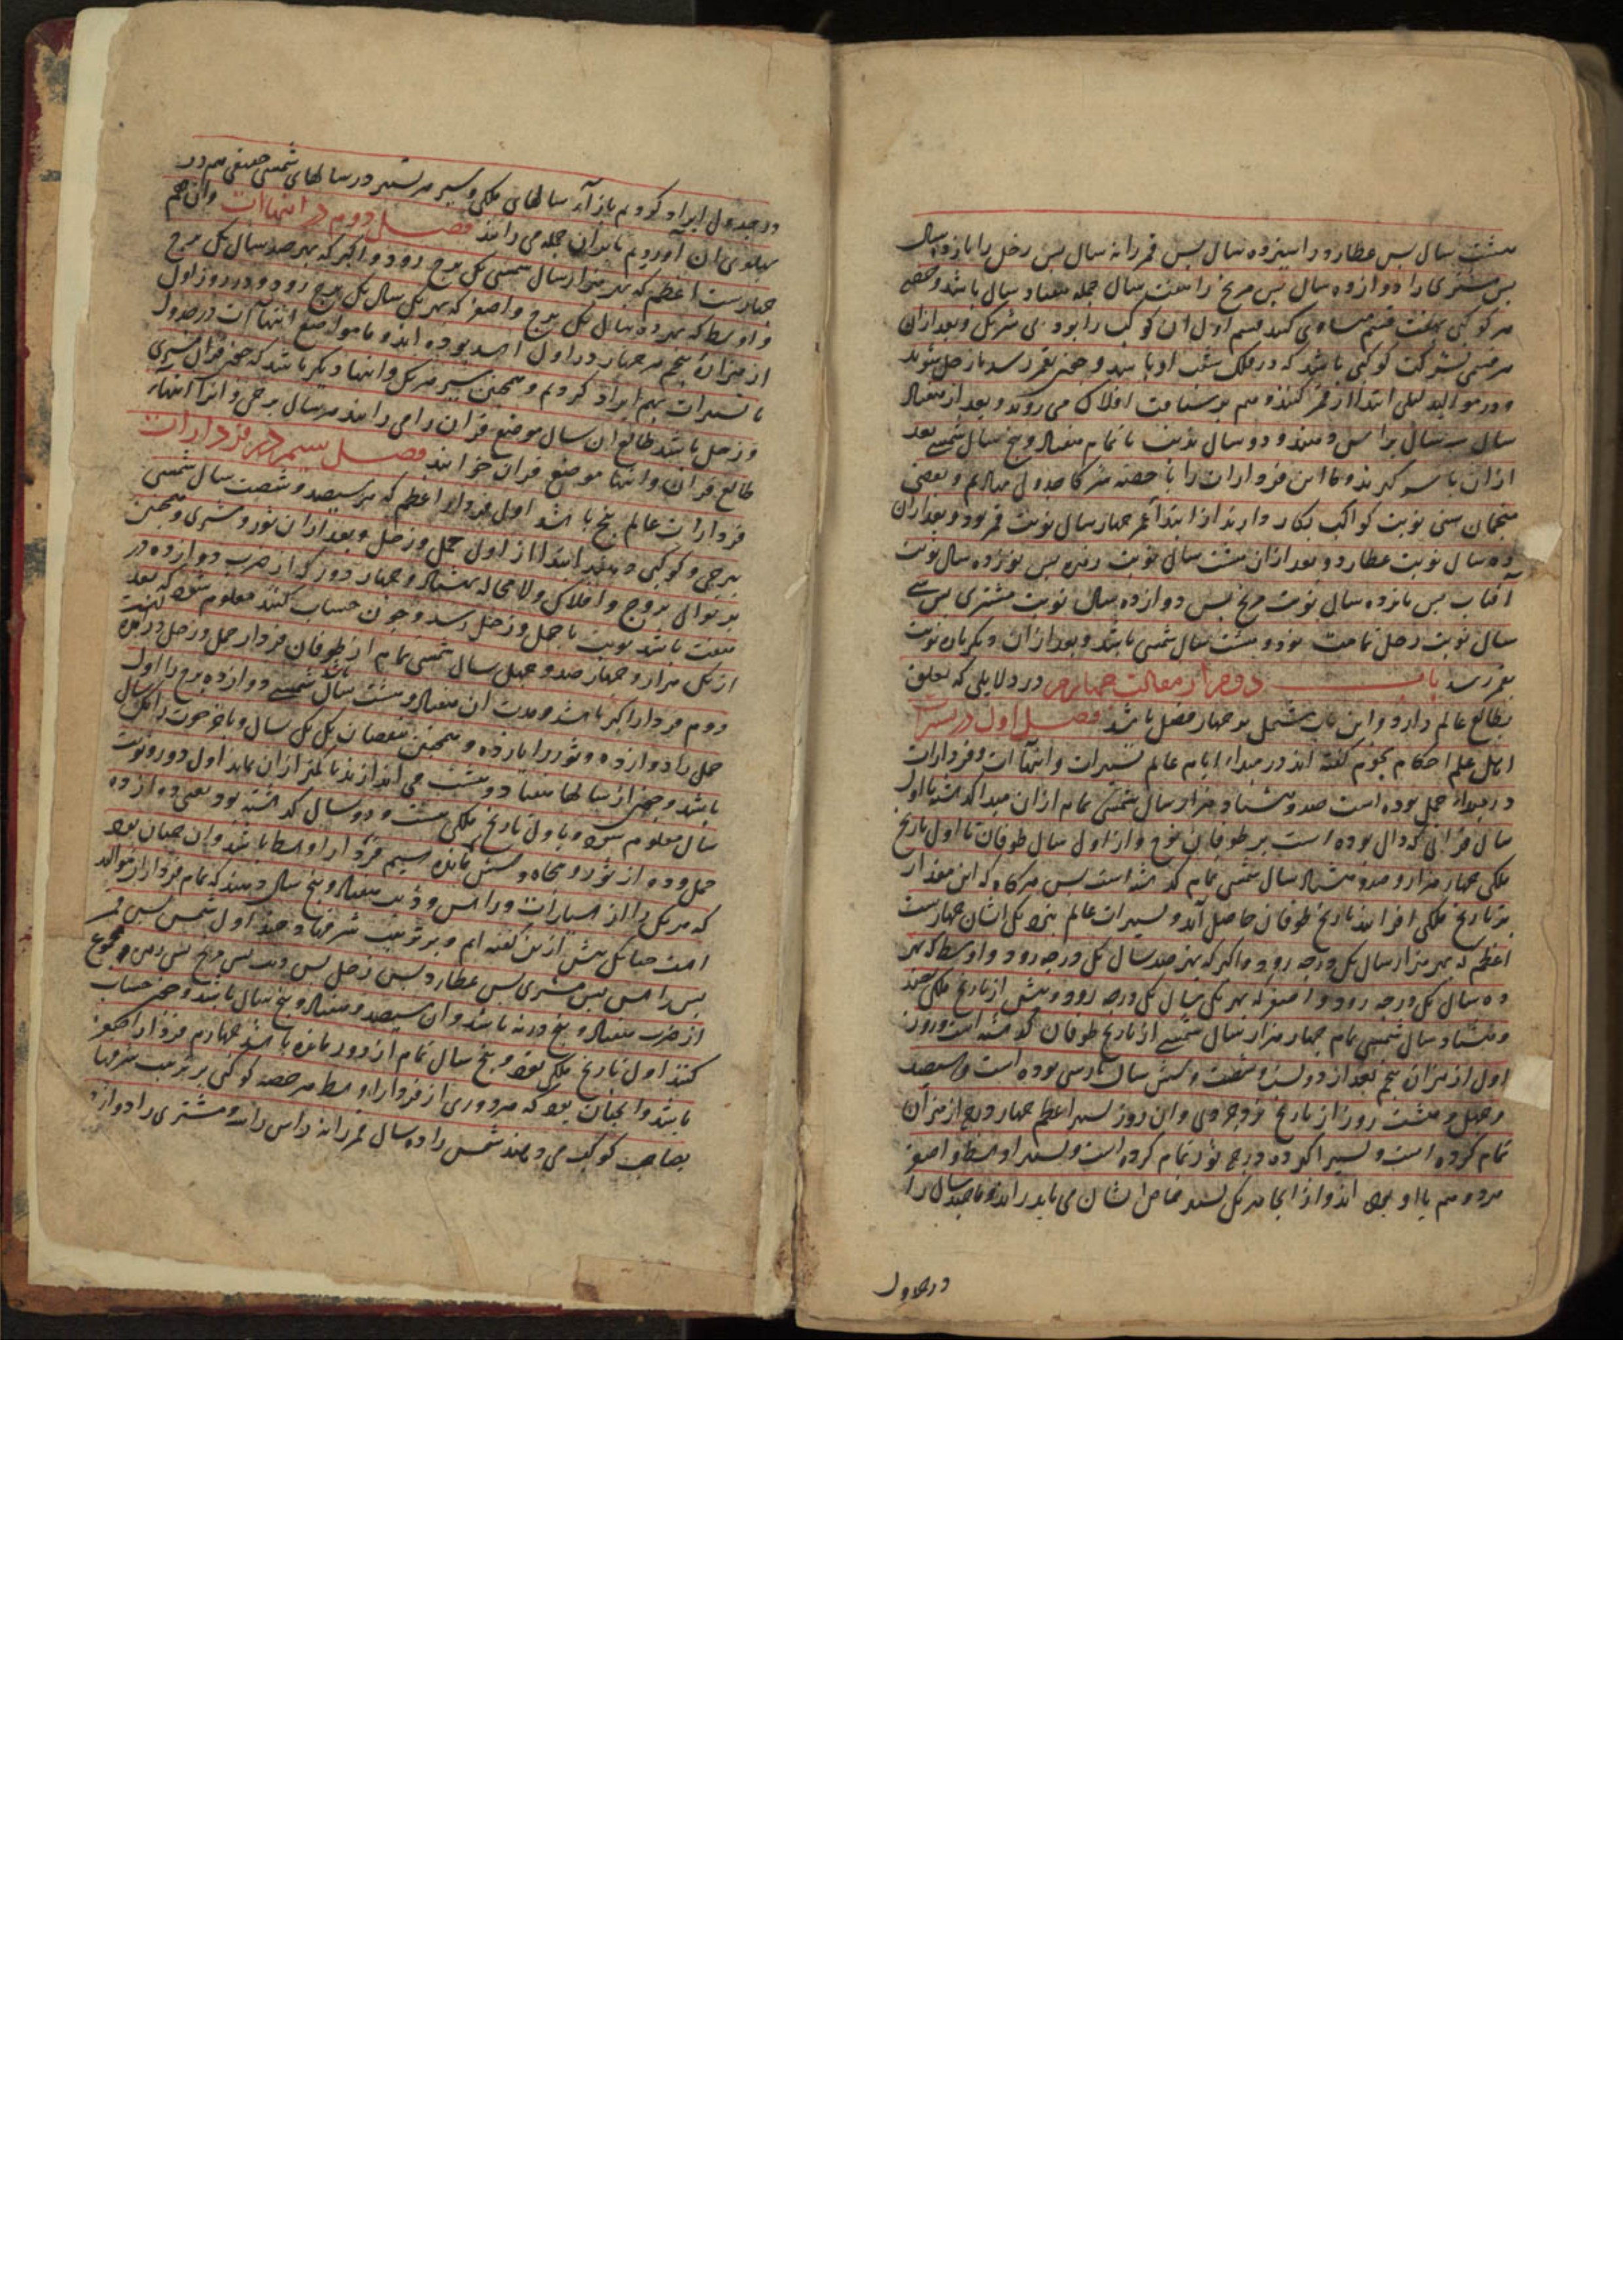 هشت سال پس عطارد را سیزده سال پس قمر را نه سال پس زحل را یازده سال
پس مشتری را دوازده سال پس مریخ را هفت سال جمله هفتاد سال باشد و حصه
هر کوکبی بهفت قسم مساوی کنند قسم اول آن کوکب را بود بی شریک و بعد از آن
هر قسمی بشرکت کوکبی باشد که در فلک تحت او باشد و چون بقمر رسد باز زحل شوند
و در موالید لیلی ابتدا از قمر کنند و هم بر مسافت افلاک می روند و بعد از هفتاد
سال سه سال براس دهند و دو سال بذنب تا تمام هفتاد و پنج سال شمسی بعد
از آن با سر گیرند و ما این فردارات را با حصه شرکا جدول نهادیم و بعضی
منجمان سنی نوبت کواکب بکار دارند از ابتدا عمر چهار سال نوبت قمر بود و بعد از آن
ده سال نوبت عطارد و بعد از آن هشت سال نوبت زهره پس نوزده سال نوبت
آفتاب پس پانزده سال نوبت مریخ پس دوازده سال نوبت مشتری پس سی
سال نوبت زحل تمامت نود و هشت سال شمسی باشد و بعد از آن دیگر باره نوبت
بقمر رسد باب دوم از مقالت چهارم در دلایلی که تعلق
بطالع عالم دارد و این باب مشتمل بر چهار فصل باشد فصل اول در تسییرات
اهل علم احکام نجوم گفته اند در مبداء ایام عالم تسییرات و انتهاآت و فردارات
در مبداء حمل بوده است صد و هشتاد هزار سال شمسی تمام از آن مبدا گذشته تا اول
سال قرانی که دال بوده است بر طوفان نوح و از اول سال طوفان تا اول تاریخ
ملکی چهار هزار و صد و هشتاد سال شمسی تمام گذشته است پس هرگاه که این مقدار
بر تاریخ ملکی افزایند تاریخ طوفان حاصل آید و تسییرات عالم بنزدیک ایشان چهارست
اعظم که بهر هزار سال یک درجه رود و اکبر که بهر صد سال یک درجه رود و اوسط که بهر
ده سال یک درجه رود و اصغر که بهر یک سال یک درجه رود و پیش از تاریخ ملکی صد
و هشتاد سال شمسی تمام چهار هزار سال شمسی از تاریخ طوفان گذشته است و روز
اول از میزان پنجم بعد از دویست و شصت و شش سال فارسی بوده است و سیصد
و چهل و هشت روز از تاریخ یزدجردی و آن روز تسییر اعظم چهار درجه از میزان
تمام کرده است و تسییر اکبر ده درجه ثور تمام کرده است و تسییر اوسط و اصغر
هر دو هم با او بوده اند و از آنجا هر یک بسیر خاص ایشان می باید راند و ما چند سال را
در جدول
در جدول ایراد کردیم بازآء سالهای ملکی و سیر هر تسییر در سالهای شمسی حقیقی هم در
پهلوی آن آوردیم تا بر آن جمله می رانند فصل دوم در انتهاآت و آن هم
چهارست اعظم که بهر هزار سال شمسی یک برج رود و اکبر که بهر صد سال یک برج
و اوسط که بهر ده سال یک برج و اصغر که بهر یک سال یک برج رود و در روز اول
از میزان پنجم هر چهار در اول اسد بوده اند و ما مواضع انتهاآت در جدول
با تسییرات بهم ایراد کردیم و همچنین سیر هر یک و انتهاء دیگر باشد که چون قران مشتری
و زحل باشد طالع آن سال موضع قران را می رانند هر سال برجی و آنرا انتهاء
طالع قران و انتهاء موضع قران خوانند فصل سیم در فردارات
فردارات عالم پنج باشد اول فردار اعظم که هر سیصد و شصت سال شمسی
ببرجی و کوکبی دهند ابتدا از اول حمل و زحل و بعد از آن ثور و مشتری و همچنین
بر توالی بروج و افلاک و لا محاله بهشتاد و چهار دور که از ضرب دوازده در
هفت باشد نوبت با حمل و زحل رسد و چون حساب کنند معلوم شود که بعد
از یک هزار و چهار صد و چهل سال شمسی تمام از طوفان فردار حمل و زحل در
دوم فردار اکبر باشد و مدت آن هفتاد و هشت سال شمسی دوازده برج را اول
حمل را دوازده و ثور را یازده و همچنین بنقصان یک یک سال و بآخر حوت را یک سال
باشد و چون از سالها هفتاد و هشت می اندازند تا کمتر از آن بماند اول دور و نوبت
سال معلوم شود و باول تاریخ ملکی بیست و دو سال گذشته بود یعنی دوازده
حمل و ده از ثور و پنجاه و شش مانده سیم فردار اوسط باشد و آن چنان بود
که هر یک را از سیارات و راس و ذنب هفتاد و پنج سال دهند که تمام فردار موالید
است چنانک پیش ازین گفته ایم و بر ترتیب شرفها دهند اول شمس پس قمر
پس راس پس مشتری پس عطارد پس زحل پس ذنب پس مریخ پس زهره و مجموع
از ضرب هفتاد و پنج در نه باشد و آن سیصد و هفتاد و پنج سال باشد و چون حساب
کنند اول تاریخ ملکی بعد و پنج سال تمام از دور مانده باشد چهارم فردار اصغر
باشد و آنچنان بود که هر دوری از فردار اوسط هر حصه کوکبی بر ترتیب شرفها
بصاحب کوکب می دهند شمس را ده سال قمر را نه راس را سه و مشتری را دوازده